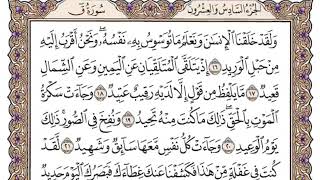 الجزء السادس والعشرون سورة ق
ولقد خلقنا الإنسن ونعلم ما توسوس به نفسه ونحن أقرب إليه
من حبل الوريد ١٦ إذ يتلقى المتلقيان عن اليمين وعن الشمال
قعيد ١٧ ما يلفظ من قول إلا لديه رقيب عتيد ١٨ وجاءت سكرة
الموت بالحق ذلك ما كنت منه تحيد ١٩ ونفخ في الصور ذلك
يوم الوعيد ٢٠ وجاءت كل نفس معها سائق وشهيد ٢١ لقد
كنت في غفلة من هذا فكشفنا عنك غطاءك فبصرك اليوم حديد